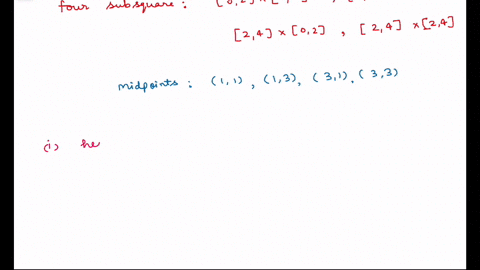 four subsquare :
[2,4] x [0,2] , [2,4] x [2,4]
midpoints : (1,1) , (1,3), (3,1), (3,3)
(i) he